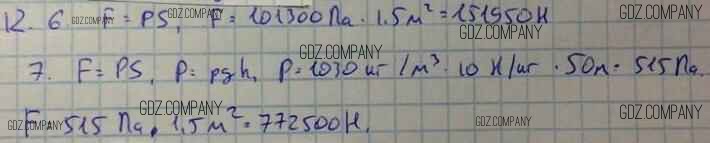 12. 6. F = PS, P = 101300 Па · 1.5 м² = 151950 Н
GDZ.COMPANY GDZ.COMPANY GDZ.COMPANY
GDZ.COMPANY
7. F = PS, P = ρgh, P = 1030 кг/м³ · 10 Н/кг · 50м = 515 Па.
GDZ.COMPANY GDZ.COMPANY
F = 515 Па · 1,5 м² = 772500 Н.
GDZ.COMPANY GDZ.COMPANY GDZ.COMPANY